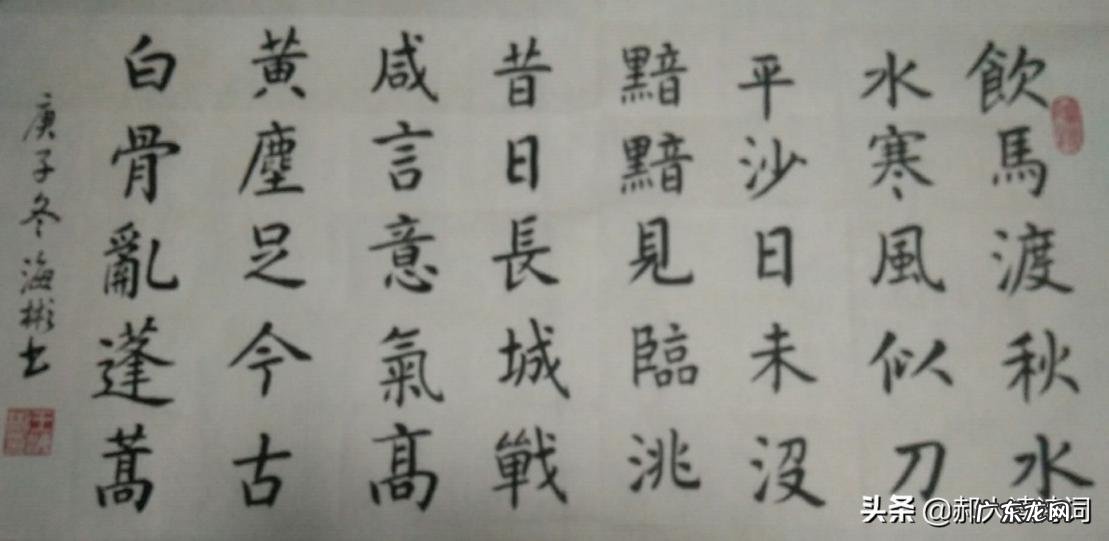 飲馬渡秋水
水寒風似刀
平沙日未没
黯黯見臨洮
昔日長城戰
咸言意氣高
黄塵足今古
白骨亂蓬蒿
庚子冬海彬书
头条
广东龙网